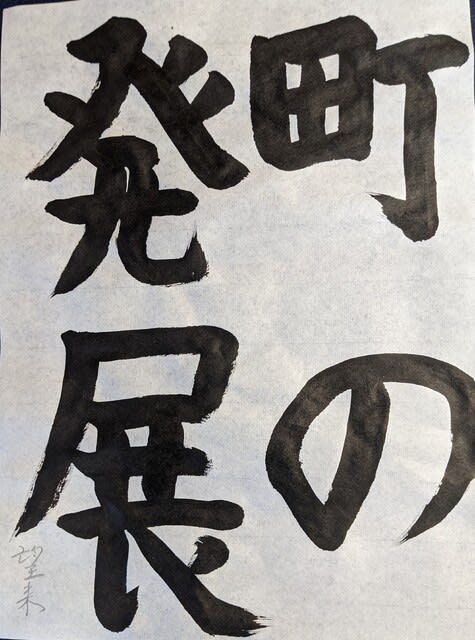 町の
発展
望来